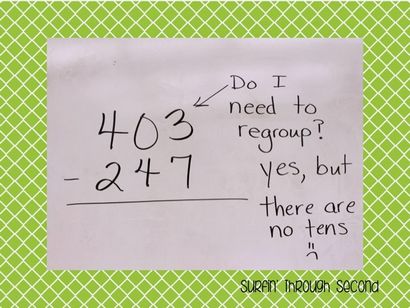 403
- 247
Do I
need to
regroup?
yes, but
there are
no tens
SURFIN' THROUGH SECOND